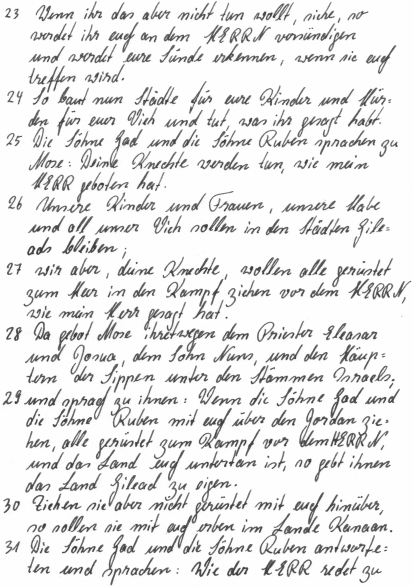 23 Wenn ihr das aber nicht tun wollt, siehe, so
werdet ihr euch an dem HERRN versündigen
und werdet eure Sünde erkennen, wenn sie euch
treffen wird.
24 So baut nun Städte für eure Kinder und Hür-
den für euer Vieh und tut, was ihr gesagt habt.
25 Die Söhne Gad und die Söhne Ruben sprachen zu
Mose: Deine Knechte werden tun, wie mein
HERR geboten hat.
26 Unsere Kinder und Frauen, unsere Habe
und all unser Vieh sollen in den Städten Gile-
ads bleiben;
27 wir aber, deine Knechte, wollen alle gerüstet
zum Heer in den Kampf ziehen vor dem HERRN,
wie mein Herr gesagt hat.
28 Da gebot Mose ihretwegen dem Priester Eleasar
und Josua, dem Sohn Nuns, und den Häup-
tern der Sippen unter den Stämmen Israels,
29 und sprach zu ihnen: Wenn die Söhne Gad und
die Söhne Ruben mit euch über den Jordan zie-
hen, alle gerüstet zum Kampf vor dem HERRN,
und das Land euch untertan ist, so gebt ihnen
das Land Gilead zu eigen.
30 Ziehen sie aber nicht gerüstet mit euch hinüber,
so sollen sie mit euch erben im Lande Kanaan.
31 Die Söhne Gad und die Söhne Ruben antworte-
ten und sprachen: Wie der HERR redet zu